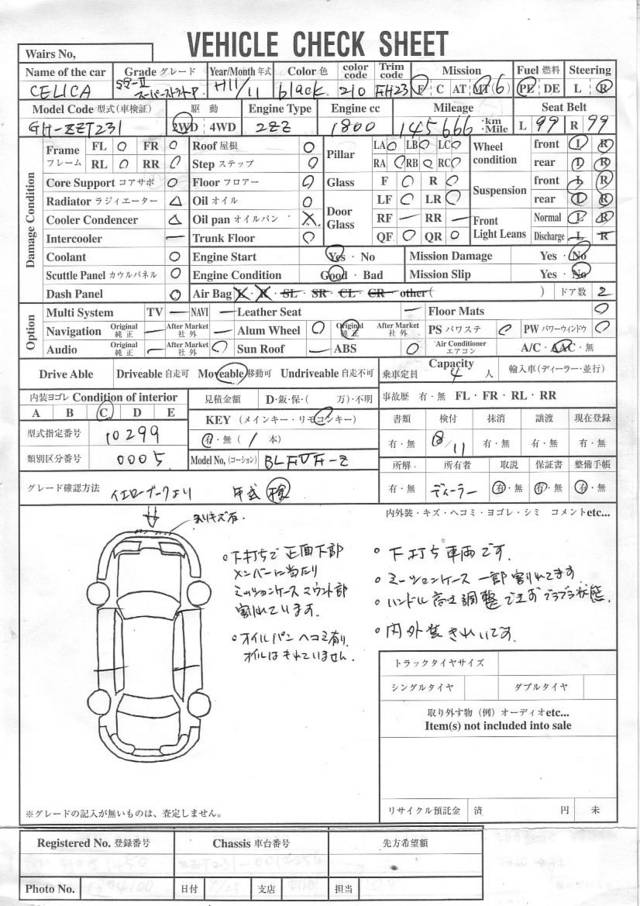 VEHICLE CHECK SHEET
Wairs No,
Name of the car Grade グレード Year/Month 年式 Color 色 color code Trim code Mission Fuel 燃料 Steering
CELICA SS-II スーパーストラットP. H11/11 black 210 FH23 F C AT MT (6) PE DE L R
Model Code 型式(車検証) 駆動 Engine Type Engine cc Mileage Seat Belt
GH-ZZT231 2WD・4WD 2ZZ 1800 145666 ・km ・Mile L 99 R 99
Damage Condition
Frame フレーム FL ○ FR ○ Roof 屋根 ○ Pillar LA LB LC Wheel condition front L R
RL ○ RR ○ Step ステップ ○ RA RB RC rear L R
Core Support コアサポ ○ Floor フロアー ○ Glass F ○ R ○ Suspension front L R
Radiator ラジィエーター △ Oil オイル ○ Door Glass LF ○ LR ○ rear L R
Cooler Condencer △ Oil pan オイルパン X RF — RR — Front Light Leans Normal L R
Intercooler — Trunk Floor ○ QF ○ QR ○ Discharge L R
Coolant ○ Engine Start Yes・No Mission Damage Yes・No
Scuttle Panel カウルパネル ○ Engine Condition Good・Bad Mission Slip Yes・No
Dash Panel ○ Air Bag X・X・SL・SR・CL・CR・other( ) ドア数 2
Option
Multi System TV — NAVI — Leather Seat — Floor Mats ○
Navigation Original 純正 — After Market 社外 — Alum Wheel ○ Original 純正 After Market 社外 — PS パワステ ○ PW パワーウィンドウ ○
Audio Original 純正 — After Market 社外 — Sun Roof — ABS ○ Air Conditioner エアコン A/C・AAC・無
Drive Able Driveable 自走可 Moveable 移動可 Undriveable 自走不可 乗車定員 Capacity 4 人 輸入車(ディーラー・並行)
内装ヨゴレ Condition of interior 見積金額 D・鈑・保・( 万)・不明 事故歴 有・無 FL・FR・RL・RR
A B C D E KEY (メインキー・リモコンキー) 書類 検付 抹消 譲渡 現在登録
型式指定番号 10299 有・無 ( 1 本) 有・無 8/11 有・無 有・無 有・無
類別区分番号 0005 Model No, (コーション) BLFVF-Z 所解 所有者 取説 保証書 整備手帳
グレード確認方法 イエローブックより 年式 検 有・無 ディーラー 有・無 有・無 有・無
内外装・キズ・ヘコミ・ヨゴレ・シミ コメントetc...
・下打ちで正面下部
メンバーに当たり
ミッションケースマウント部
割れています。
・オイルパン ヘコミ有り
オイルはもれていません。
・下打ち車両です。
・ミーッションケース一部割れてます
・ハンドル高さ調整できずブラブラ状態.
・内外装きれいです。
トラックタイヤサイズ
シングルタイヤ ダブルタイヤ
取り外す物(例)オーディオetc...
Item(s) not included into sale
※グレードの記入が無いものは、査定しません。
リサイクル預託金 済 円 未
Registered No. 登録番号 Chassis 車台番号 先方希望額
Photo No. 日付 支店 担当